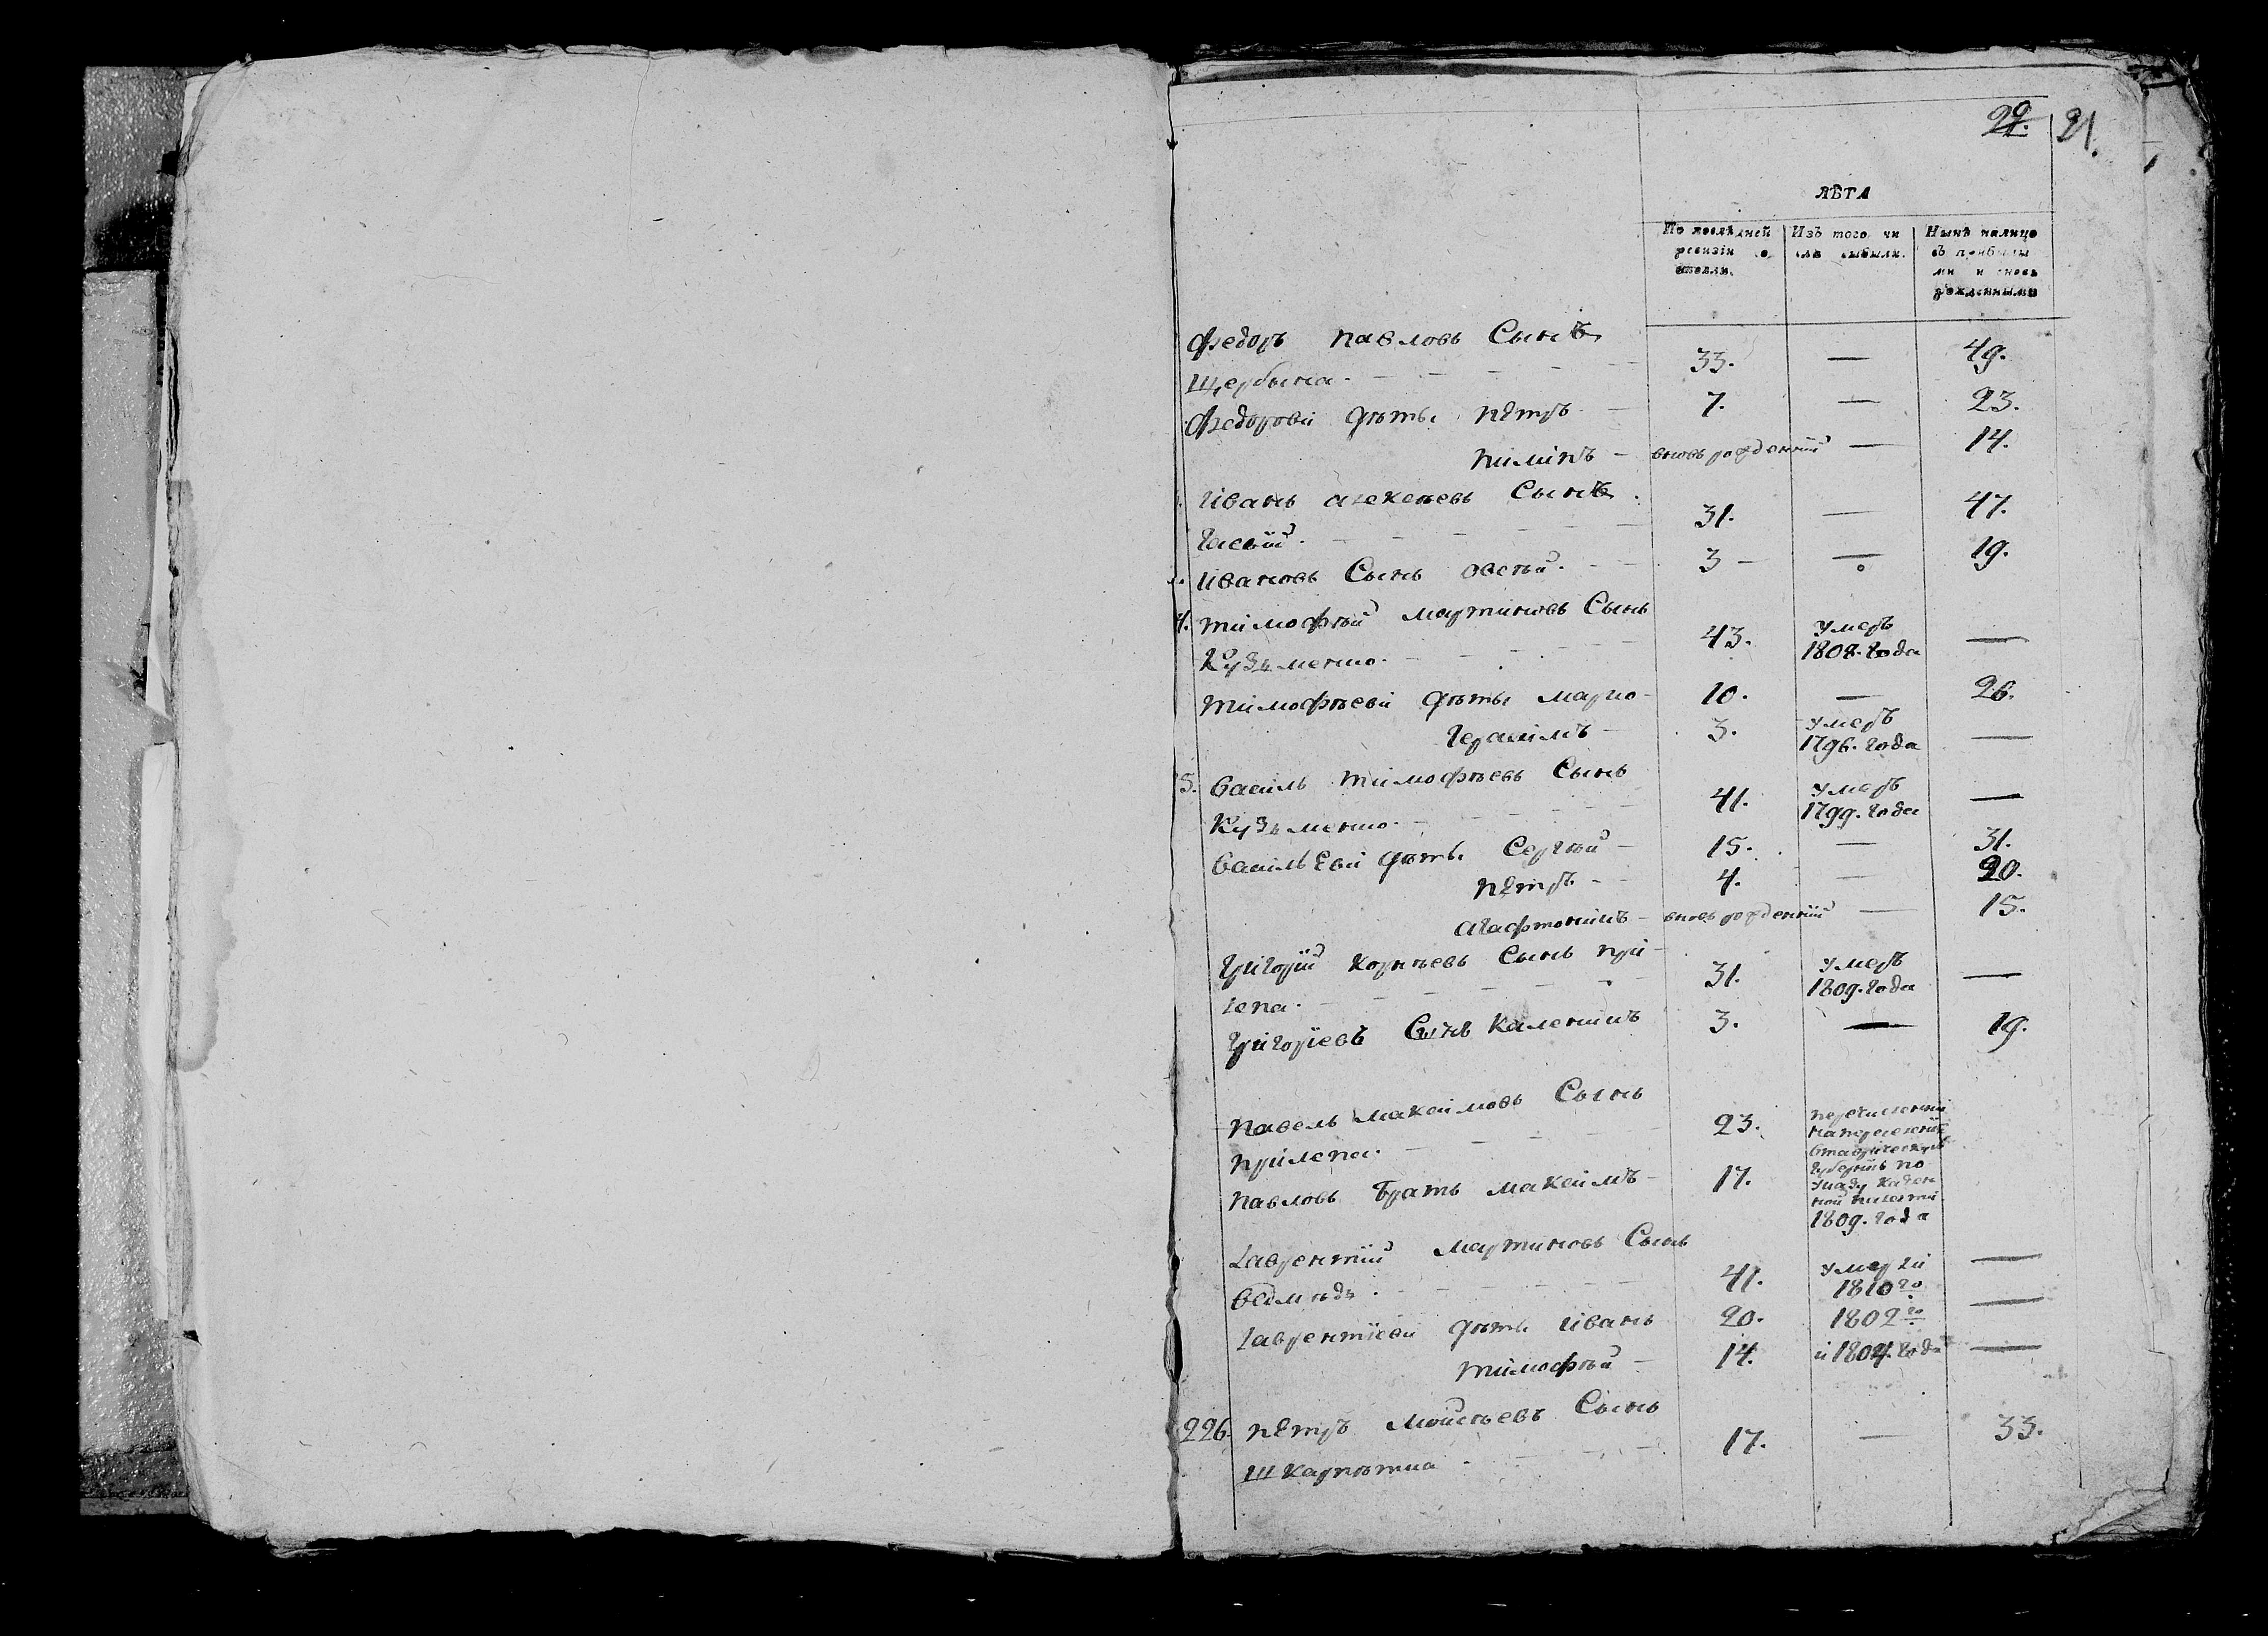 29. 21.
ЛѢТА
По послѣдней ревизіи состояли. Изъ того чи сла выбыли. Нынѣ налицо съ прибылы ми и вновь рожденными
Федоръ Павловъ Сынъ
Щербына. 33. — 49.
Федорови дѣты Пётръ 7. — 23.
Пиминъ — вновь рожденный — 14.
Иванъ Алексѣевъ Сынъ
31. — 47.
Ивановъ Сынъ Овсѣй. 3 — — 19.
4. Тимофѣй Мартиновъ Сынъ
Кузьменко. 43. Умеръ 1802. года —
Тимофѣеви дѣты Марко 10. — 26.
Герасимъ 3. Умеръ 1796. года —
5. Василь Тимофѣевъ Сынъ
Кузьменко. 41. Умеръ 1799. года —
Васильеви дѣты Сергѣй 15. — 31.
Пётръ 4. — 20.
Агафтонимъ — вновь рожденный — 15.
Григорій Корнѣевъ Сынъ При
лепа. 31. Умеръ 1809. года —
Григоріевъ Сынъ Каленикъ 3. — 19.
Павелъ Максимовъ Сынъ
Прилепа. 23.
Павловъ Братъ Максимъ 17.
Перечисленни
на переселеніе
в таврическую
Губернію по
указу казен
ной палати
1809. года
Лаврентій Мартиновъ Сынъ
Ведмѣдь. 41. Умерли 1810го —
Лаврентіеви дѣты Иванъ 20. 1802го —
Тимофѣй 14. и 1804. года —
226. Пётръ Мойсѣевъ Сынъ
Шкарпѣтка 17. — 33.